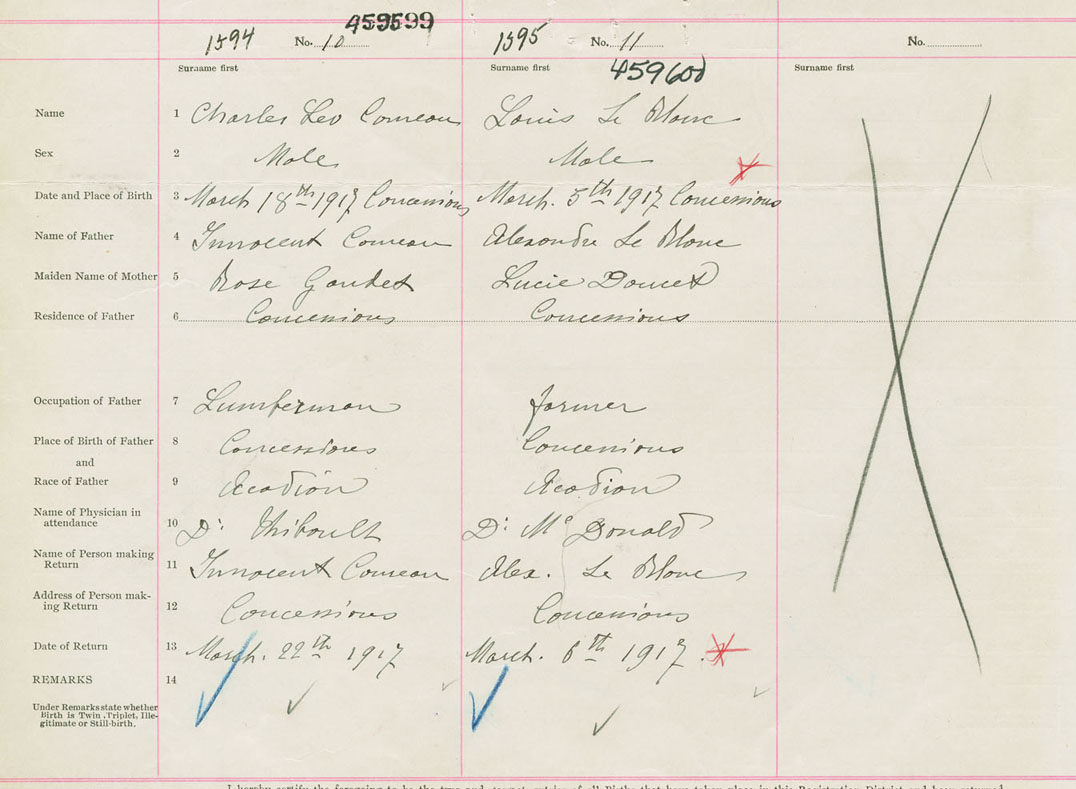 459599
1594 No. 10 1595 No. 11 No.
Surname first Surname first 459600 Surname first
Name 1 Charles Leo Comeau Louis Le Blanc
Sex 2 Male Male
Date and Place of Birth 3 March 18th 1917 Concessions March. 5th 1917 Concessions
Name of Father 4 Innocent Comeau Alexandre Le Blanc
Maiden Name of Mother 5 Rose Gaudet Lucie Doucet
Residence of Father 6 Concessions Concessions
Occupation of Father 7 Lumberman farmer
Place of Birth of Father 8 Concessions Concessions
and
Race of Father 9 Acadian Acadian
Name of Physician in
attendance 10 Dr Thibault Dr McDonald
Name of Person making
Return 11 Innocent Comeau Alex. Le Blanc
Address of Person mak-
ing Return 12 Concessions Concessions
Date of Return 13 March. 22th 1917 March. 6th 1917.
REMARKS 14
Under Remarks state whether
Birth is Twin, Triplet, Ille-
gitimate or Still-birth.
I hereby certify the foregoing to be the true and correct entries of all Births that have taken place in this Registration District and been returned